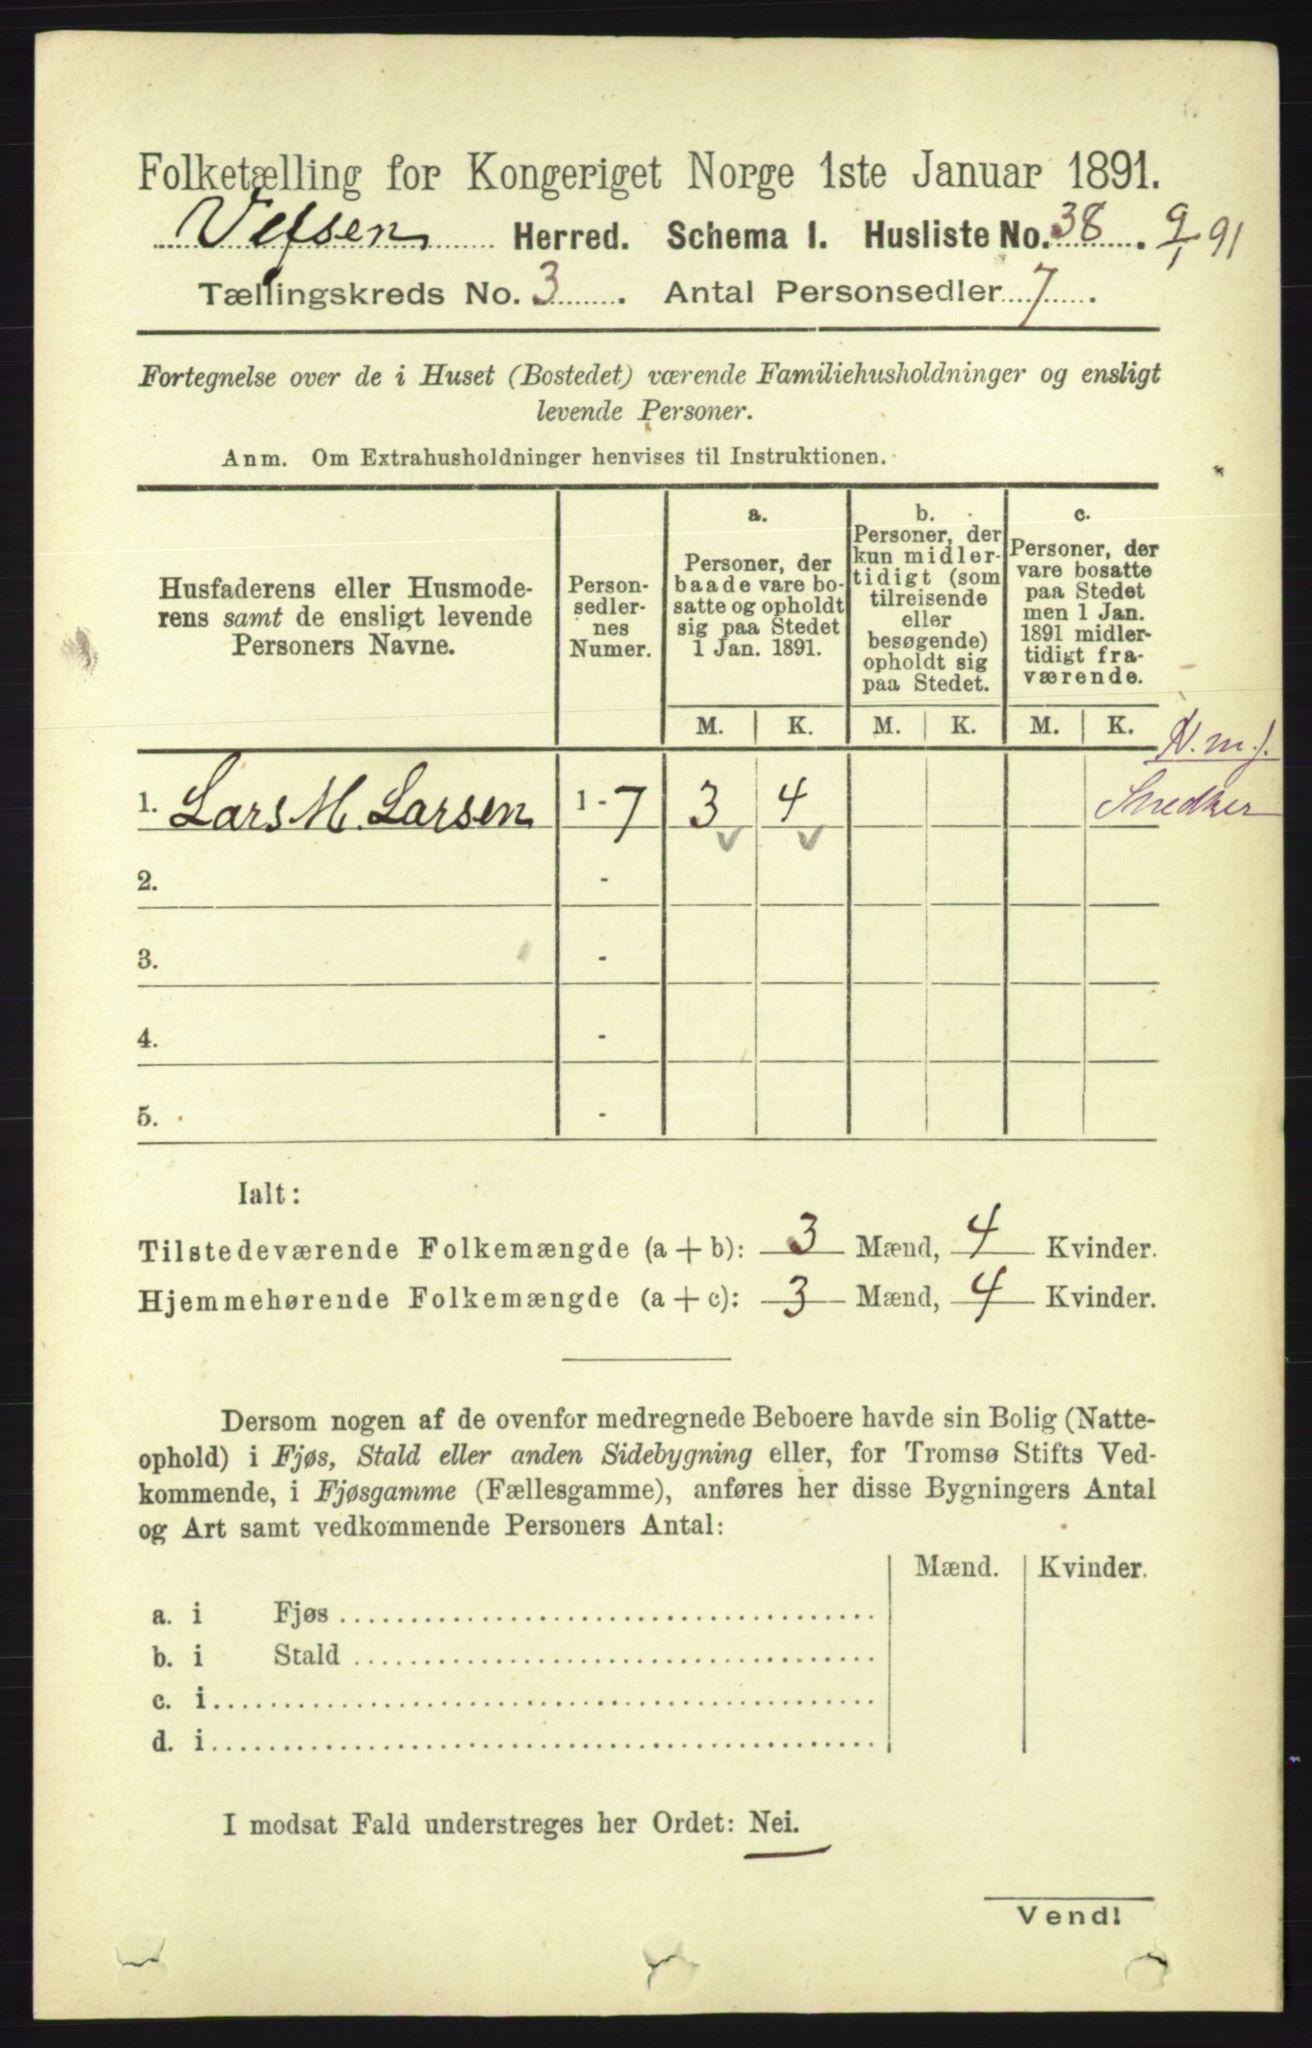 Folketælling for Kongeriget Norge 1ste Januar 1891.
Vefsen Herred. Schema I. Husliste No. 38. 9/1 91
Tællingskreds No. 3. Antal Personsedler 7.
Fortegnelse over de i Huset (Bostedet) værende Familiehusholdninger og ensligt
levende Personer.
Anm. Om Extrahusholdninger henvises til Instruktionen.
Husfaderens eller Husmode-
rens samt de ensligt levende
Personers Navne.
Person-
sedler-
nes
Numer.
a.
Personer, der
baade vare bo-
satte og opholdt
sig paa Stedet
1 Jan. 1891.
b.
Personer, der
kun midler-
tidigt (som
tilreisende
eller
besøgende)
opholdt sig
paa Stedet.
c.
Personer, der
vare bosatte
paa Stedet
men 1 Jan.
1891 midler-
tidigt fra-
værende.
M. K. M. K. M. K.
N. m. f.
1. Lars M. Larsen 1 - 7 3 4 Snedker
2. -
3. -
4. -
5. -
Ialt:
Tilstedeværende Folkemængde (a + b): 3 Mænd, 4 Kvinder.
Hjemmehørende Folkemængde (a + c): 3 Mænd, 4 Kvinder.
Dersom nogen af de ovenfor medregnede Beboere havde sin Bolig (Natte-
ophold) i Fjøs, Stald eller anden Sidebygning eller, for Tromsø Stifts Ved-
kommende, i Fjøsgamme (Fællesgamme), anføres her disse Bygningers Antal
og Art samt vedkommende Personers Antal:
Mænd. Kvinder.
a. i Fjøs
b. i Stald
c. i
d. i
I modsat Fald understreges her Ordet: Nei.
Vend!